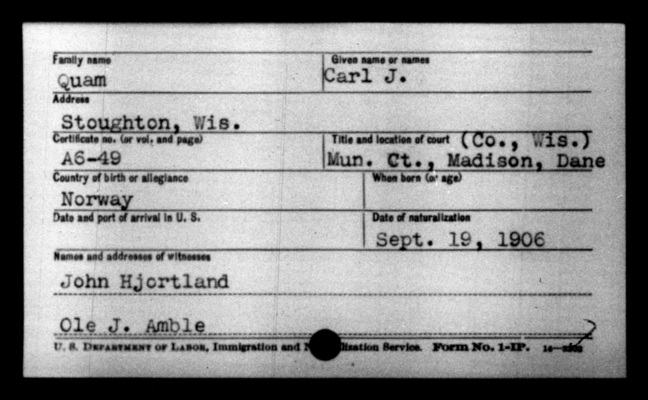 Family name Given name or names
Quam Carl J.
Address
Stoughton, Wis.
Certificate no. (or vol. and page) Title and location of court (Co., Wis.)
A6-49 Mun. Ct., Madison, Dane
Country of birth or allegiance When born (or age)
Norway
Date and port of arrival in U. S. Date of naturalization
Sept. 19, 1906
Names and addresses of witnesses
John Hjortland
Ole J. Amble
U. S. Department of Labor, Immigration and Service. Form No. 1-IP.